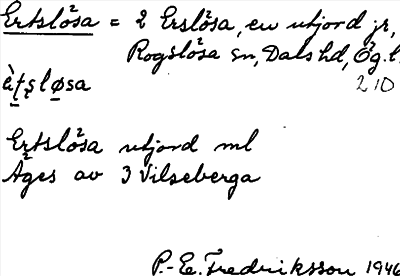 Ertslösa = 2 Erslösa, en utjord jr,
Rogslösa sn, Dals hd, Ög. l.
210
Ertslösa utjord ml
Äges av 3 Vilseberga
P.-E. Fredriksson 1946